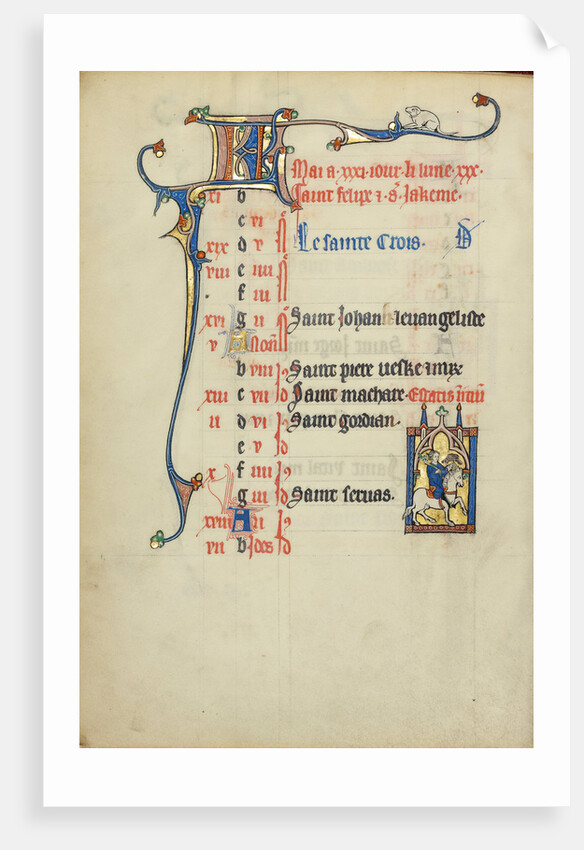 KL
Mai a·xxxi·iour·li lune·xxx·
xi b Saint felix ⁊ s· Jakeme·
c vi
xix d v Le sainte Crois·
viii e iiii
f iii
xvi g ii Saint Johan leuangeliste
v A Non
b viii Saint piere
xiii c vii id Saint machare·Estatis
ii d vi Saint gordian·
e v id
x f iiii
g iii id Saint seruas·
xviii A ii
vii b ides id